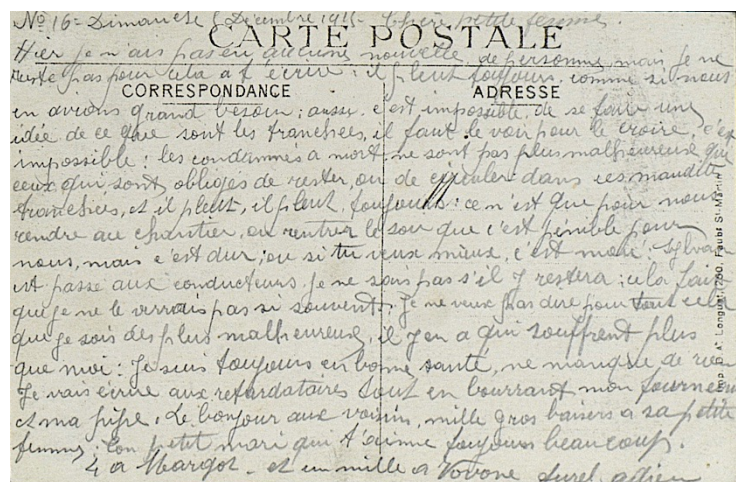 No 16 = Dimanche 5 Décembre 1915 - Chère petite femme.
CARTE POSTALE
Hier je n'ais pas eu aucune nouvelle de personne, mais je ne
reste pas pour cela a t'écrire : il pleut toujours, comme si nous
CORRESPONDANCE
ADRESSE
en avions grand besoin ; aussi c'est impossible de se faire une
idée de ce que sont les tranchées, il faut le voir pour le croire, c'est
impossible : les condamnés a mort ne sont pas plus malheureux que
ceux qui sont obligés de rester, ou de circuler dans ces maudites
tranchées, et il pleut, il pleut toujours : ce n'est que pour nous
rendre au chantier, ou rentrer le soir que c'est pénible pour
nous, mais c'est dur ; ou si tu veux mieux, c'est mou. Sylvain
est passé aux conducteurs. je ne sais pas s'il y restera : cela fait
que je ne le verrais pas si souvent. Je ne veux pas dire pour tout cela
que je sois des plus malheureux, il y en a qui souffrent plus
que moi : Je suis toujours en bonne santé, ne manque de rien
Je vais écrire aux retardataires tout en bourrant mon fourneau
et ma pipe. Le bonjour aux voisins, mille gros baisers a sa petite
femme. Ton petit mari qui t'aime toujours beaucoup.
4 a Margot - et un mille a Vovone adieu
Imp. D. A. Longuet, 250, Faubg St-Martin